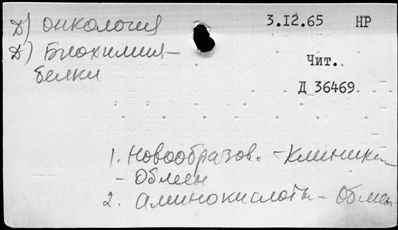 Д) онкология
3.12.65 НР
Д) Биохимия -
белки
Чит.
Д 36469
1. Новообразов. - клиника
- Обмен
2. Аминокислоты - Обмен